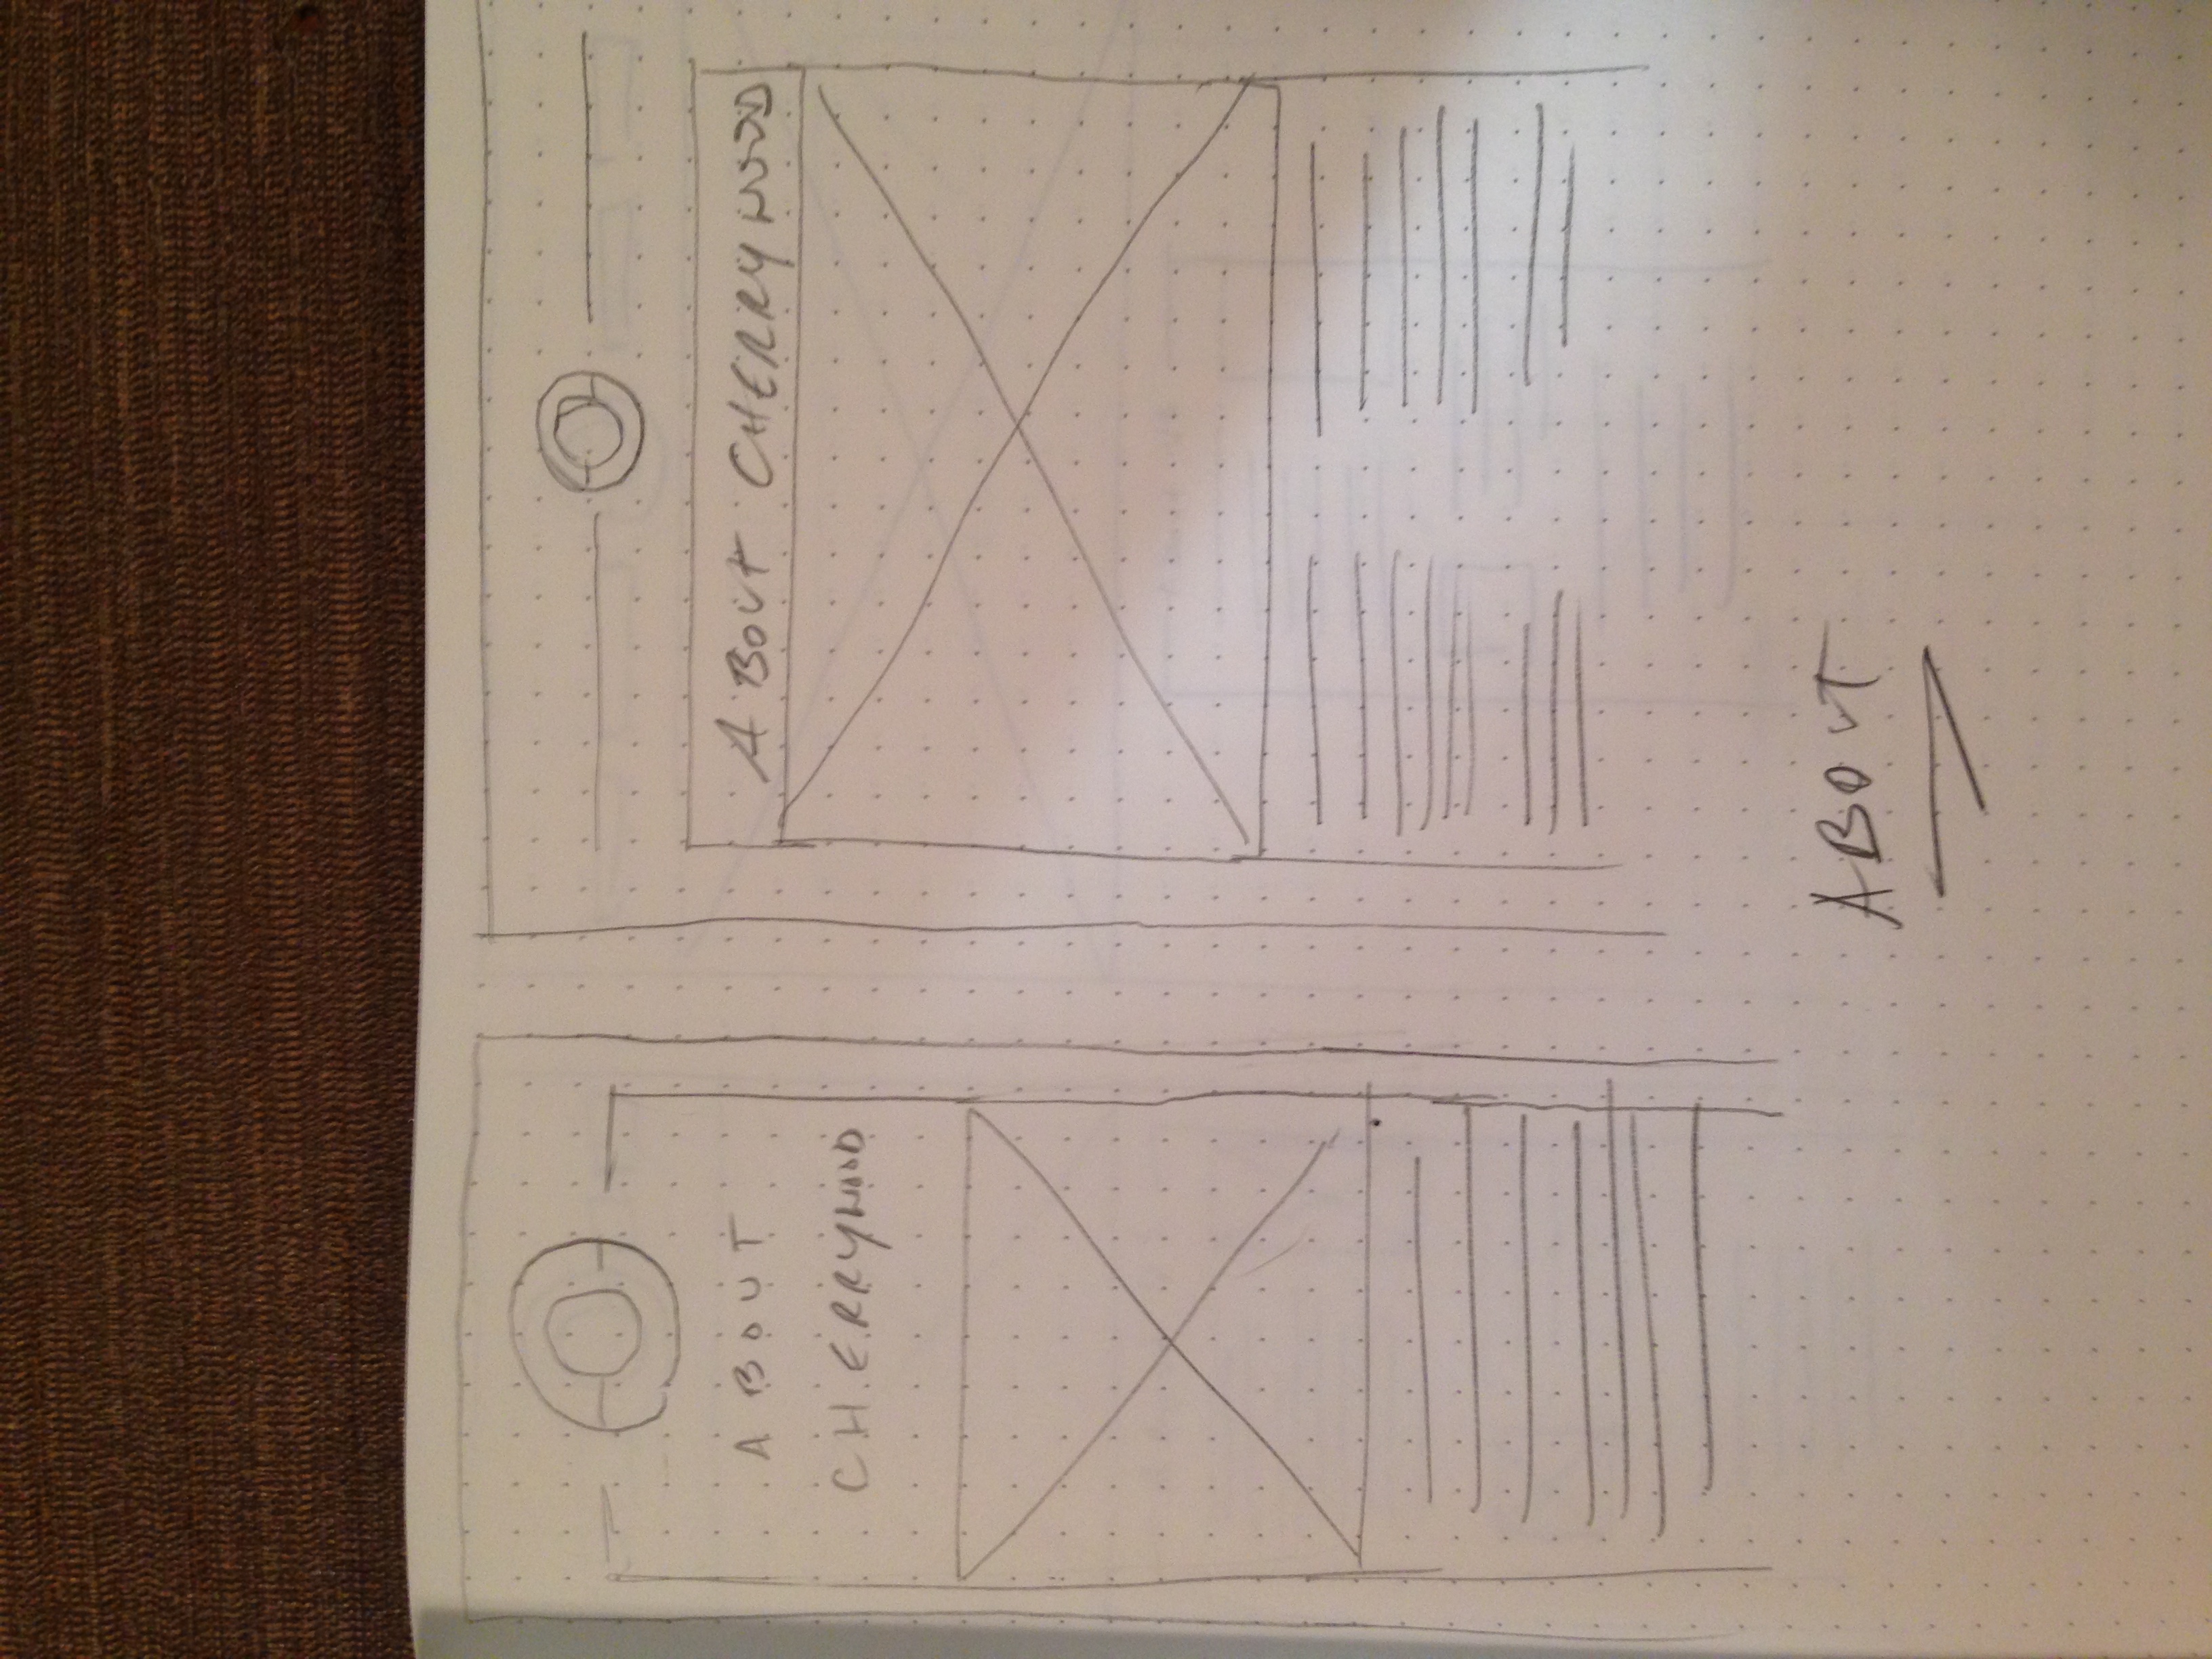 ABOUT
CHERRYWOOD
ABOUT CHERRYWOOD
ABOUT